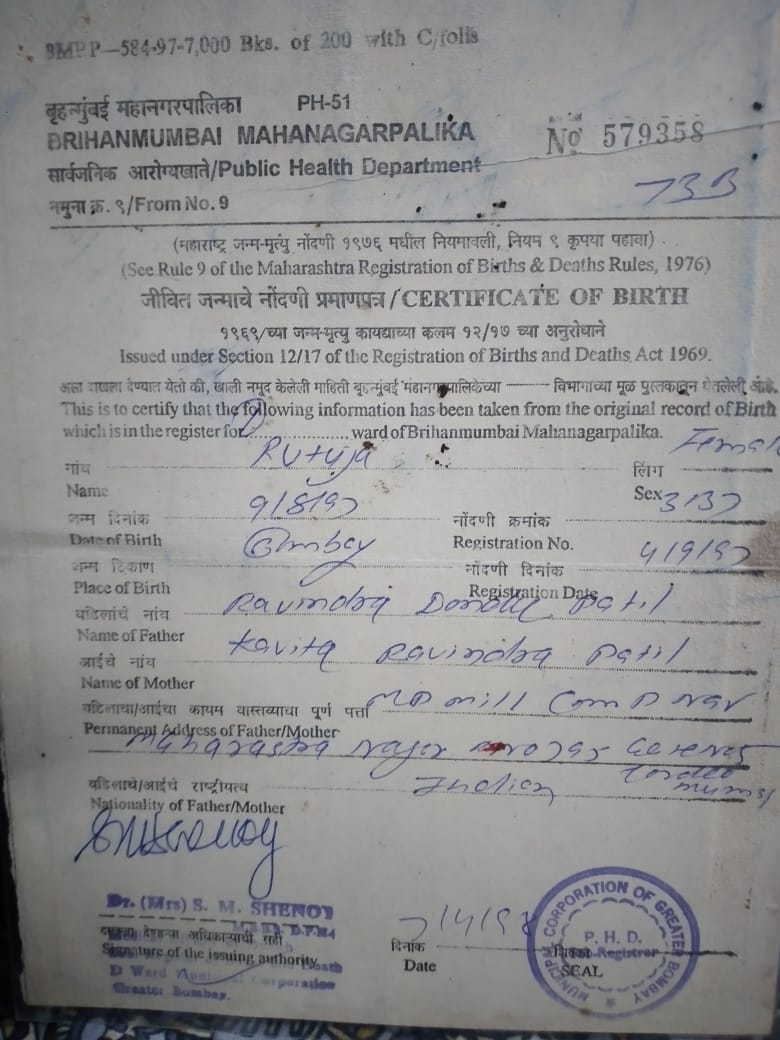 BMPP-584-97-7,000 Bks. of 200 with C/folis
बृहन्मुंबई महानगरपालिका PH-51
BRIHANMUMBAI MAHANAGARPALIKA № 579358
सार्वजनिक आरोग्यखाते/Public Health Department
नमुना क्र. ९/From No. 9
(महाराष्ट्र जन्म-मृत्यु नोंदणी १९७६ मधील नियमावली, नियम ९ कृपया पहावा)
(See Rule 9 of the Maharashtra Registration of Births & Deaths Rules, 1976)
जीवित जन्माचे नोंदणी प्रमाणपत्र/CERTIFICATE OF BIRTH
१९६९/च्या जन्म-मृत्यु कायद्याच्या कलम १२/१७ च्या अनुरोधाने
Issued under Section 12/17 of the Registration of Births and Deaths Act 1969.
असा दाखला देण्यात येतो की, खाली नमूद केलेली माहिती बृहन्मुंबई महानगरपालिकेच्या विभागाच्या मूळ पुस्तकातून घेतलेली आहे.
This is to certify that the following information has been taken from the original record of Birth
which is in the register for D ward of Brihanmumbai Mahanagarpalika.
नांव Rutuja लिंग Female
Name Sex
जन्म दिनांक 9/8/97 नोंदणी क्रमांक 3137
Date of Birth Registration No.
जन्म ठिकाण Bombay नोंदणी दिनांक 4/9/97
Place of Birth Registration Date
वडिलांचे नांव Ravindra Patil
Name of Father
आईचे नांव Kavita Ravindra Patil
Name of Mother
वडिलाचा/आईचा कायम वास्तव्याचा पूर्ण पत्ता MP mill Comp
Permanent Address of Father/Mother
Maharastra Nagar
वडिलाचे/आईचे राष्ट्रीयत्व Indian
Nationality of Father/Mother
Dr. (Mrs) S. M. SHENOY
दाखला देणाऱ्या अधिकाऱ्याची सही
Signature of the issuing authority
D Ward Municipal Corporation
Greater Bombay.
दिनांक
Date
MUNICIPAL CORPORATION OF GREATER BOMBAY
P. H. D.
Sub Registrar
शिक्का
SEAL